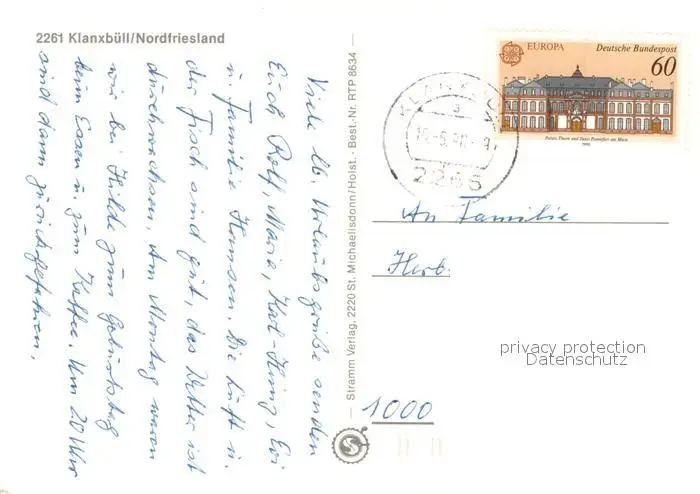 2261 Klanxbüll/Nordfriesland
Viele lb. Urlaubsgrüße senden
Euch Rolf, Marie, Karl-Heinz, Evi
u. Familie Hansen. Die Luft u.
der Fisch sind gut, das Wetter ist
durchwachsen. Am Montag waren
wir bei Hilde zum Geburtstag
beim Essen u. zum Kaffee. Um 20 Uhr
sind dann zurückgefahren.
Stramm Verlag, 2220 St. Michaelisdonn/Holst. - Best.-Nr. RTP 8634
EUROPA
Deutsche Bundespost
60
Palais Thurn und Taxis Frankfurt am Main
1990
2265
An Familie
Herb.
privacy protection
Datenschutz
1000